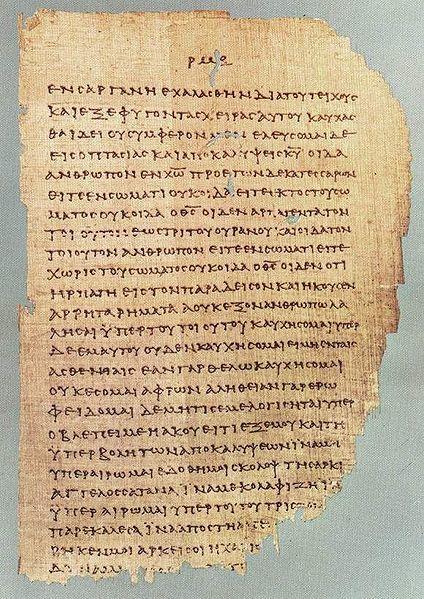 ΕΝΣΑΡΓΑΝΗΕΧΑΛΑΣΘΗΝΔΙΑΤΟΥΤΕΙΧΟΥΣ
ΚΑΙΕΞΕΦΥΓΟΝΤΑΣΧΕΙΡΑΣΑΥΤΟΥΚΑΥΧΑΣ
ΘΑΙΔΕΙΟΥΣΥΜΦΕΡΟΝΜΕΝΕΛΕΥΣΟΜΑΙΔΕ
ΕΙΣΟΠΤΑΣΙΑΣΚΑΙΑΠΟΚΑΛΥΨΕΙΣΚ̅Υ̅ΟΙΔΑ
ΑΝΘΡΩΠΟΝΕΝΧ̅Ω̅ΠΡΟΕΤΩΝΔΕΚΑΤΕΣΣΑΡΩΝ
ΕΙΤΕΕΝΣΩΜΑΤΙΟΥΚΟΙΔΑΕΙΤΕΕΚΤΟΣΤΟΥΣΩ
ΜΑΤΟΣΟΥΚΟΙΔΑΟΘ̅Σ̅ΟΙΔΕΝΑΡΠΑΓΕΝΤΑΤΟΝ
ΤΟΙΟΥΤΟΝΕΩΣΤΡΙΤΟΥΟΥΡΑΝΟΥΚΑΙΟΙΔΑΤΟΝ
ΤΟΙΟΥΤΟΝΑΝΘΡΩΠΟΝΕΙΤΕΕΝΣΩΜΑΤΙΕΙΤΕ
ΧΩΡΙΣΤΟΥΣΩΜΑΤΟΣΟΥΚΟΙΔΑΟΘ̅Σ̅ΟΙΔΕΝΟΤΙ
ΗΡΠΑΓΗΕΙΣΤΟΝΠΑΡΑΔΕΙΣΟΝΚΑΙΗΚΟΥΣΕΝ
ΑΡΡΗΤΑΡΗΜΑΤΑΑΟΥΚΕΞΟΝΑΝΘΡΩΠΩΛΑ
ΛΗΣΑΙΥΠΕΡΤΟΥΤΟΙΟΥΤΟΥΚΑΥΧΗΣΟΜΑΙΥΠΕΡ
ΔΕΕΜΑΥΤΟΥΟΥΔΕΝΚΑΥΧΗΣΟΜΑΙΕΙΜΗΕΝΤΑΙΣ
ΑΣΘΕΝΕΙΑΙΣΕΑΝΓΑΡΘΕΛΩΚΑΥΧΗΣΟΜΑΙ
ΟΥΚΕΣΟΜΑΙΑΦΡΩΝΑΛΗΘΕΙΑΝΓΑΡΕΡΩ
ΦΕΙΔΟΜΑΙΔΕΜΗΤΙΣΕΜΕΛΟΓΙΣΗΤΑΙΥΠΕΡ
ΟΒΛΕΠΕΙΜΕΗΑΚΟΥΕΙΤΙΕΞΕΜΟΥΚΑΙΤΗ
ΥΠΕΡΒΟΛΗΤΩΝΑΠΟΚΑΛΥΨΕΩΝΙΝΑΜΗ
ΥΠΕΡΑΙΡΩΜΑΙΕΔΟΘΗΜΟΙΣΚΟΛΟΨΤΗΣΑΡΚΙ
ΑΓΓΕΛΟΣΣΑΤΑΝΑΙΝΑΜΕΚΟΛΑΦΙΖΗΙΝ
ΥΠΕΡΑΙΡΩΜΑΙΥΠΕΡΤΟΥΤΟΥΤΡΙΣ
ΠΑΡΕΚΑΛΕΣΑΙΝΑΑΠΟΣΤΗ
ΡΗΚΕΝΜΟΙΑΡΚΕΙΣΟΙΗΧΑΡΙΣ